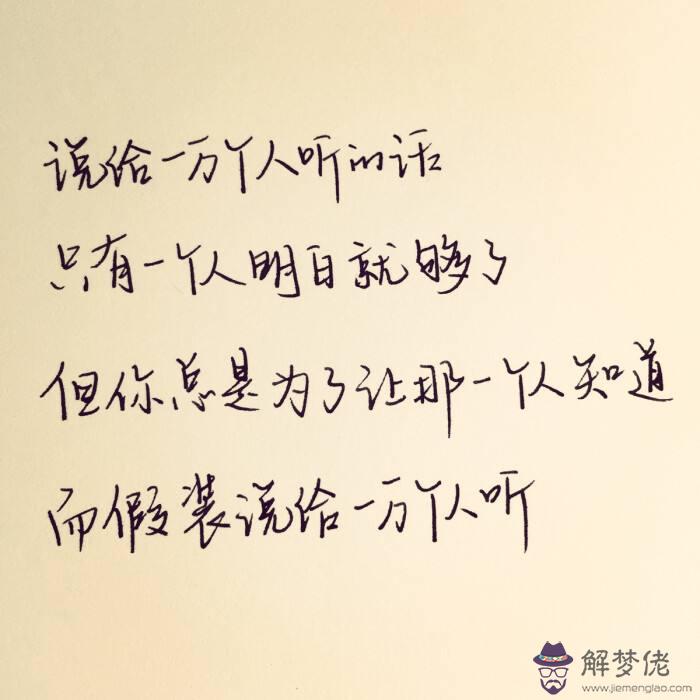 说给一万个人听的话
只有一个人明白就够了
但你总是为了让那一个人知道
而假装说给一万个人听
解梦佬
www.jiemenglao.com